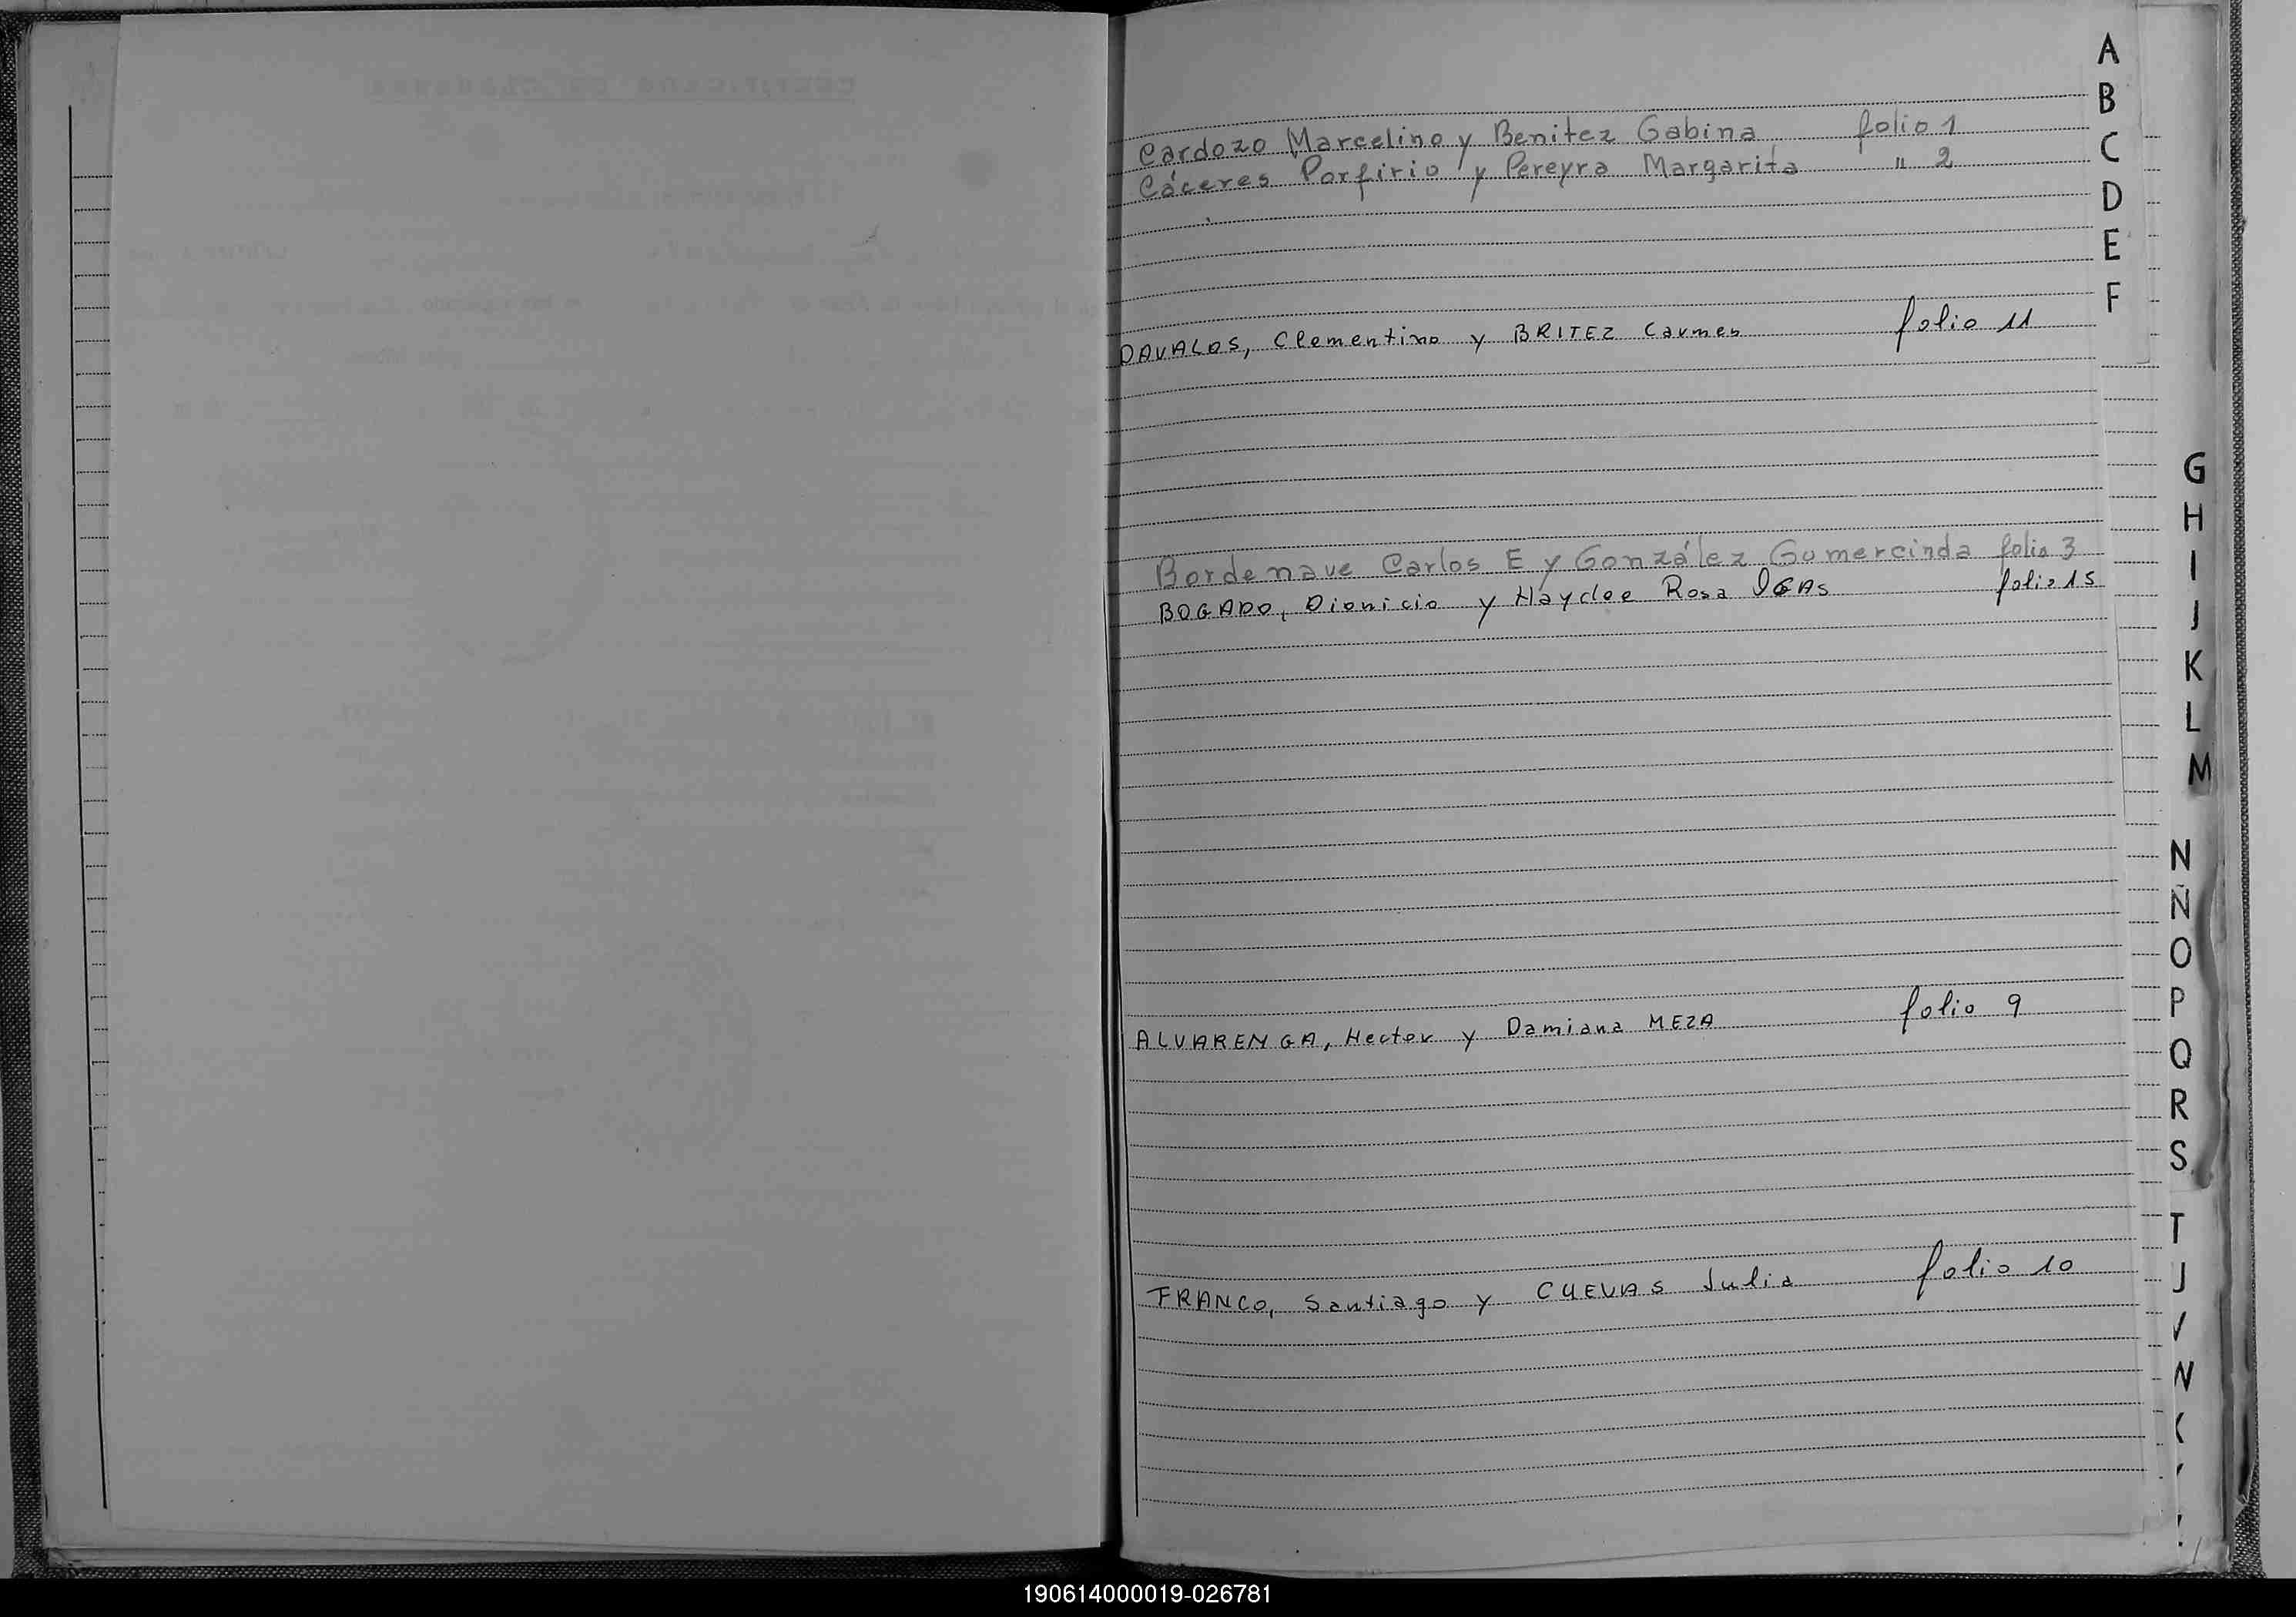 Cardozo Marcelino y Benitez Gabina folio 1
Cáceres Porfirio y Pereyra Margarita " 2
DAVALOS, Clementino y BRITEZ Carmen folio 11
Bordenave Carlos E y González Gumercinda folio 3
BOGADO, Dionicio y Haydee Rosa folio 15
ALVARENGA, Hector y Damiana MEZA folio 9
FRANCO, Santiago y CUEVAS Julia folio 10
A
B
C
D
E
F
G
H
I
J
K
L
M
N
Ñ
O
P
Q
R
S
T
190614000019-026781